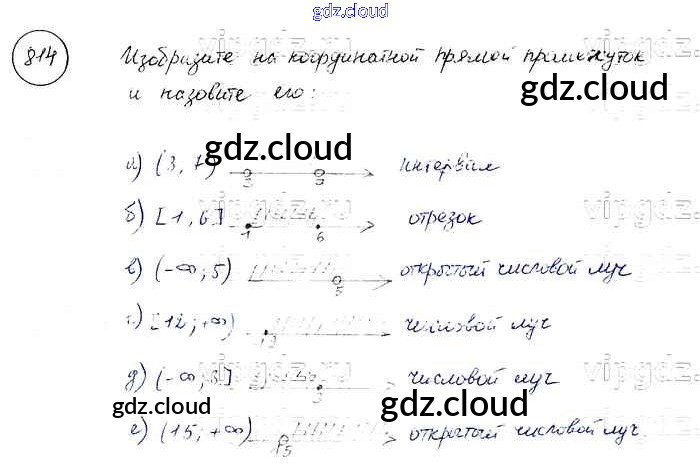 gdz.cloud
814 Изобразите на координатной прямой промежуток
и назовите его:
vipgdz.ru
gdz.cloud
gdz.cloud
а) (3, 7) 3 интервал
б) [1, 6] 1 6 отрезок
vipgdz.ru
в) (-∞; 5) 5 открытый числовой луч
г) [12; +∞) 12 числовой луч
vipgdz.ru
д) (-∞; 3] 3 числовой луч
gdz.cloud
gdz.cloud
е) (15; +∞) 15 открытый числовой луч